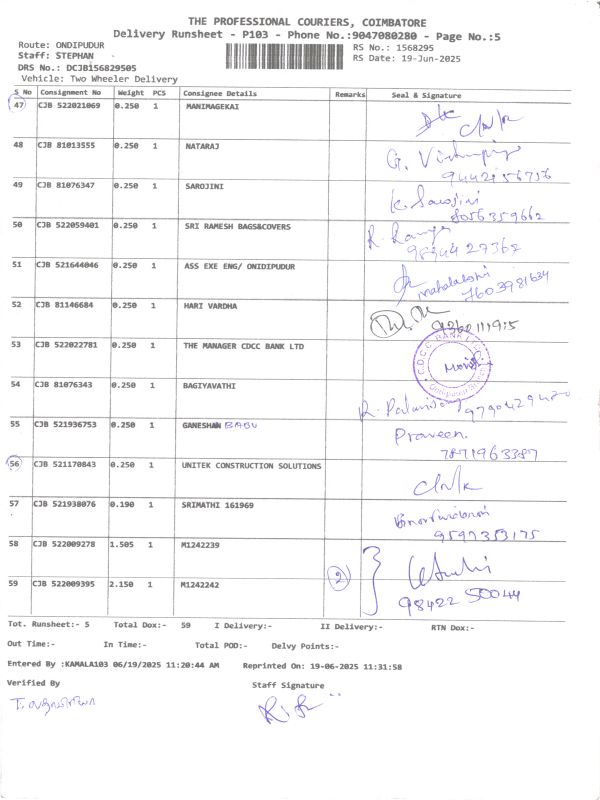 THE PROFESSIONAL COURIERS, COIMBATORE
Delivery Runsheet - P103 - Phone No.:9047080280 - Page No.:5
Route: ONDIPUDUR
RS No.: 1568295
Staff: STEPHAN
RS Date: 19-Jun-2025
DRS No.: DCJB156829505
Vehicle: Two Wheeler Delivery
S No Consignment No Weight PCS Consignee Details Remarks Seal & Signature
47 CJB 522021069 0.250 1 MANIMAGEKAI
48 CJB 81013555 0.250 1 NATARAJ
49 CJB 81076347 0.250 1 SAROJINI K. Sarojini
8056359662
50 CJB 522059401 0.250 1 SRI RAMESH BAGS&COVERS
51 CJB 521644046 0.250 1 ASS EXE ENG/ ONIDIPUDUR mahalakshmi
7603981634
52 CJB 81146684 0.250 1 HARI VARDHA
53 CJB 522022781 0.250 1 THE MANAGER CDCC BANK LTD C.D.C.C. BANK
54 CJB 81076343 0.250 1 BAGIYAVATHI
55 CJB 521936753 0.250 1 GANESHAN BABU Praveen.
7871963387
56 CJB 521170843 0.250 1 UNITEK CONSTRUCTION SOLUTIONS
57 CJB 521938076 0.190 1 SRIMATHI 161969
9597353175
58 CJB 522009278 1.505 1 M1242239
59 CJB 522009395 2.150 1 M1242242 2
98422 50044
Tot. Runsheet:- 5 Total Dox:- 59 I Delivery:- II Delivery:- RTN Dox:-
Out Time:- In Time:- Total POD:- Delvy Points:-
Entered By :KAMALA103 06/19/2025 11:20:44 AM Reprinted On: 19-06-2025 11:31:58
Verified By Staff Signature